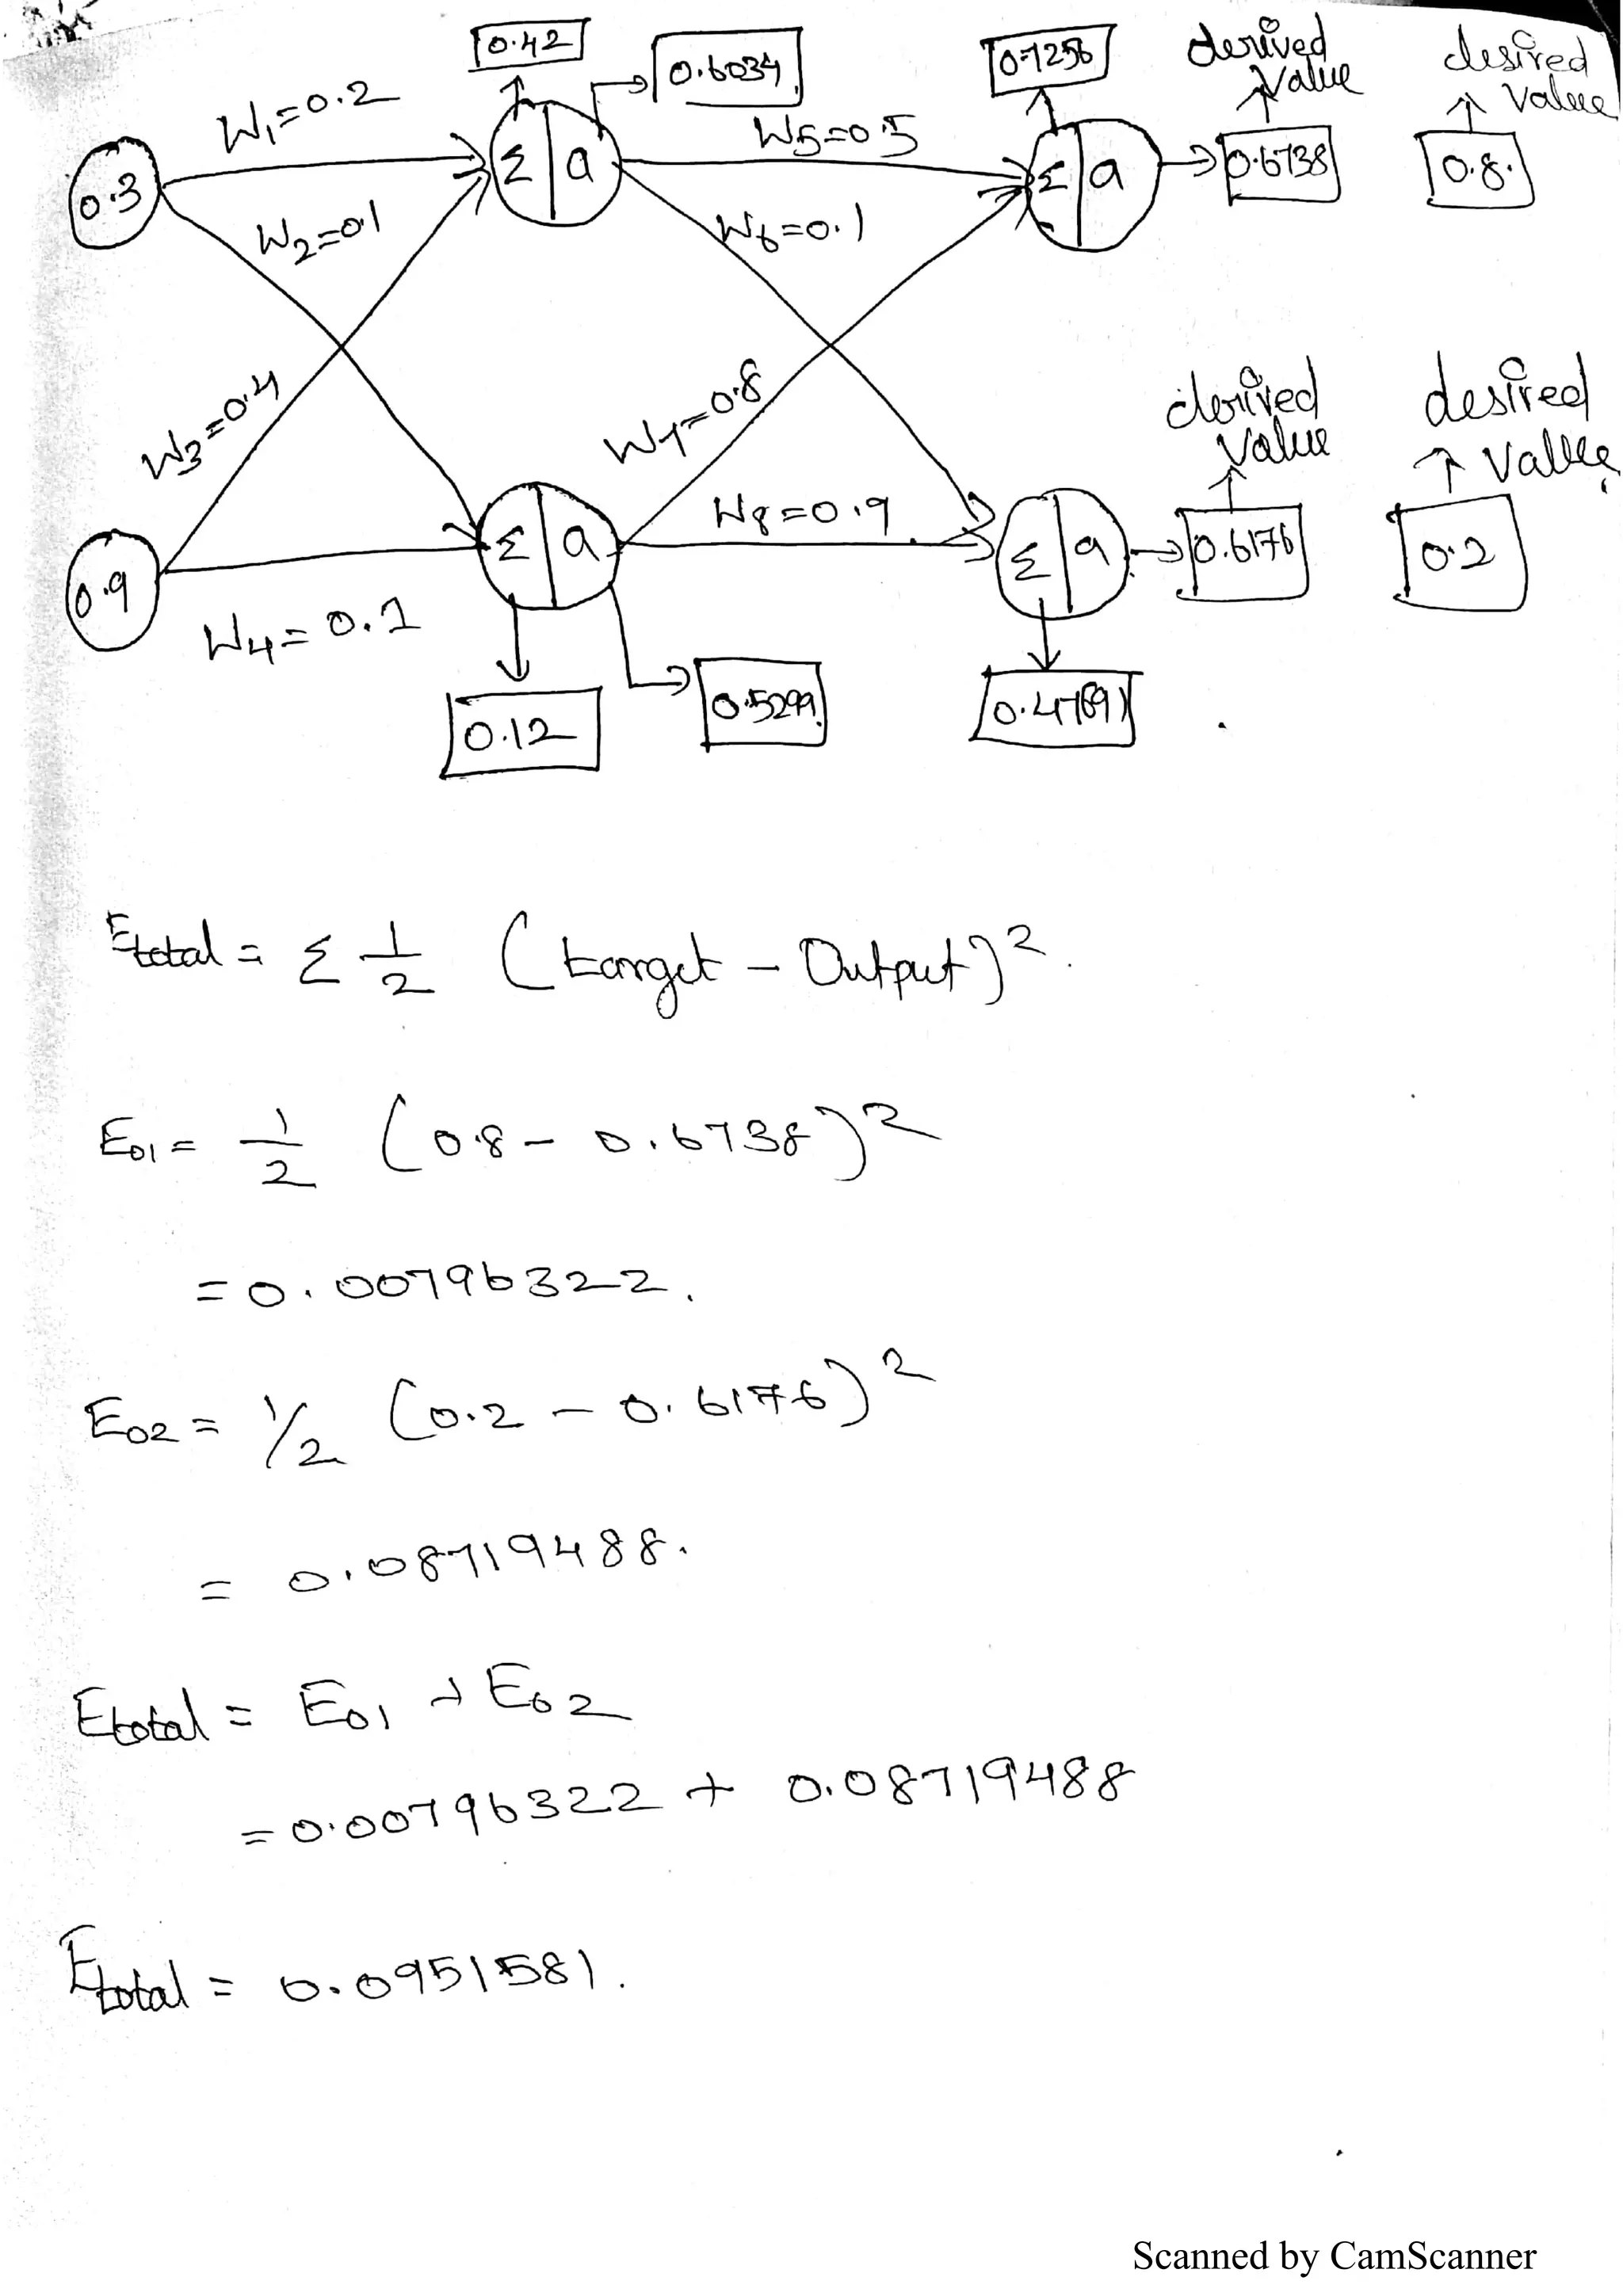 0.42
0.6034
0.7256
derived
value
desired
value
W1=0.2
W5=0.5
0.3
Σ a
Σ a
0.6738
0.8.
W2=0.1
W6=0.1
W3=0.4
W7=0.8
derived
value
desired
value
0.9
Σ a
W8=0.9
Σ a
0.6176
0.2
W4=0.1
0.12
0.5299
Etotal = Σ 1/2 (target - Output)²
E01 = 1/2 (0.8 - 0.6738)²
= 0.00796322.
E02 = 1/2 (0.2 - 0.6176)²
= 0.08719488.
Etotal = E01 + E02
= 0.00796322 + 0.08719488
Etotal = 0.0951581.
Scanned by CamScanner